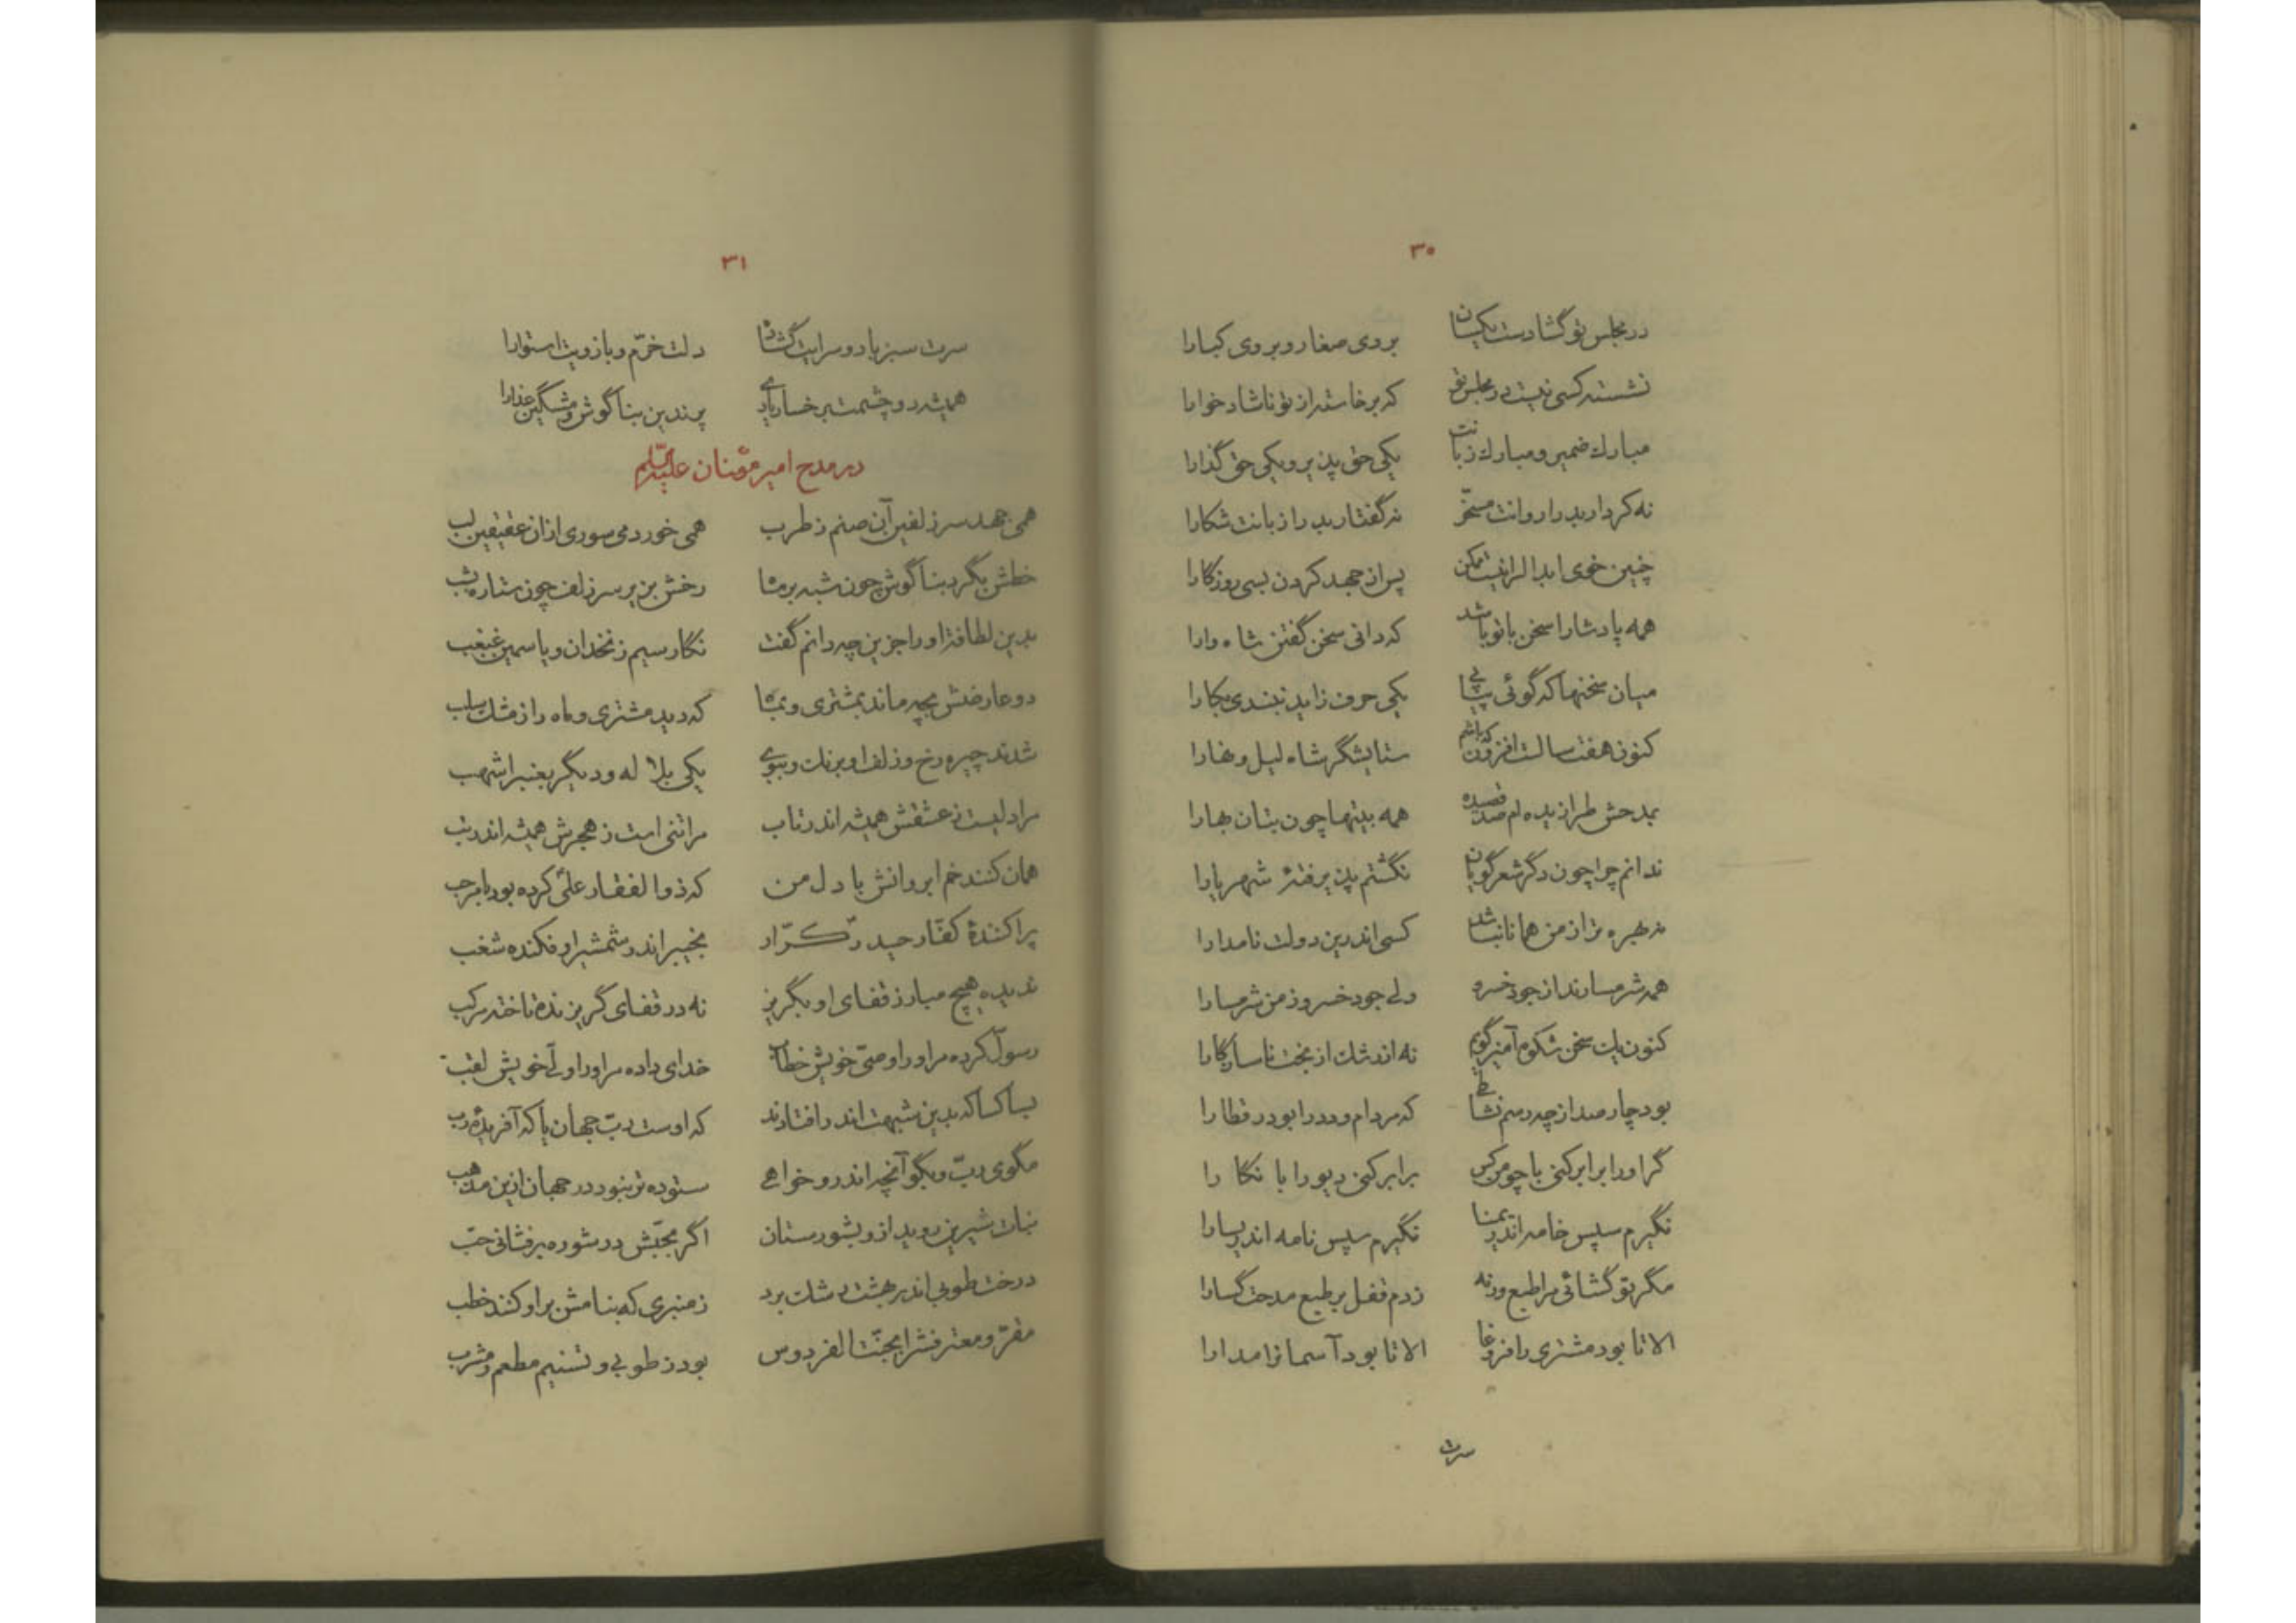 ۳۰
در مجلس تو گشادست یکسان بروی صغار و بروی کبارا
نشسته کسی نیست در مجلس تو که برخاسته از تو ناشاد خوارا
مبارك ضمیر و مبارك زبانت یکی حق پذیر و یکی حق گذارا
نه کردار بد را روانت مسخّر نه گفتار بد را زبانت شکارا
چنین خوی ابدا لرا نیست ممکن پس از جهد کردن بسی روزگارا
همه پادشا را سخن با تو باشد که دانی سخن گفتن شاه وارا
میان سخنها که گوئی پیاپی یکی حرف زاید نبندی بکارا
کنون هفت سالست افزون که باشم ستایشگر شاه لیل و نهارا
بمدحش طرازیده ام صد قصیده همه بیتها چون بتان بهارا
ندانم چرا چون دگر شعر گویان نگشتم پذیرفتهٔ شهریارا
نه بهره تر از من همانا نباشد کسی اندرین دولت نامدارا
همه شرمسارند از جود خسرو ولی جود خسرو ز من شرمسارا
کنون یك سخن شکوه آمیز گویم نه اندشك از بخت ناسازگارا
بود چار صد از چه رسم نشاطی که مر دام و دد را بود در قطارا
گر او را برابر کنی با چو من کس برابر کنی دیو را با نگا را
نگیرم سپس خامه اندر یمینا نگیرم سپس نامه اندر یسارا
مگر تو گشائی مرا طبع ورنه زدم قفل بر طبع مدحت گسارا
الا تا بود مشتری را فروغا الا تا بود آسمانرا مدارا
سرت
۳۱
سرت سبز باد و سرایت گشاده دلت خرّم و بازویت استوارا
همیشه دو چشمت برخسار یاری پرندین بناگوش و مشگین عذارا
در مدح امیر مؤمنان علیه السلم
همی جهد سر زلفین آن صنم ز طرب همی خورد می سوری از ان عقیقین لب
خطش بگرد بناگوش چون شبه بر ماه رخش بزیر سر زلف چون ستاره بشب
بدین لطافت او را جز این چه دانم گفت نگار سیم زنخدان و یاسمین غبغب
دو عارضش بچه ماند بمشتری و بماه که دید مشتری و ماه را ز مشك سلب
شدند چیره رخ و زلف او برنك و ببوی یکی بلا له و دیگر بعنبر اشهب
مرا دلیست ز عشقش همیشه اندر تاب مرا تنی است ز هجرش همیشه اندر تب
همان کنند خم ابروانش با دل من که ذوالفقار علی کرده بود با مرحب
پراکنندهٔ کفّار حیدر کرّار بخیبر اندر شمشیر او فکنده شغب
ندیده هیچ مبارز قفای او بگریز نه در قفای گریزنده تاخته مرکب
رسول کرده مر او را وصیّ خویش خطاب خدای داده مر او را ولّی خویش لقب
بسا کسا که بدین شبهت اندر افتادند که اوست ربّ جهان یا که آفریدهٔ رب
مگوی ربّ و بگو آنچه اندرو خواهی ستوده تر نبود در جهان ازین مذهب
نبات شیرین روید ازو بشورستان اگر محبّتش در شوره بر فشانی حبّ
درخت طوبی اندر بهشت رشك برد ز منبری که بنامش بر او کنند خطب
مقرّ و معترفش را بجنّت الفردوس بود ز طوبی و تسنیم مطعم و مشرب